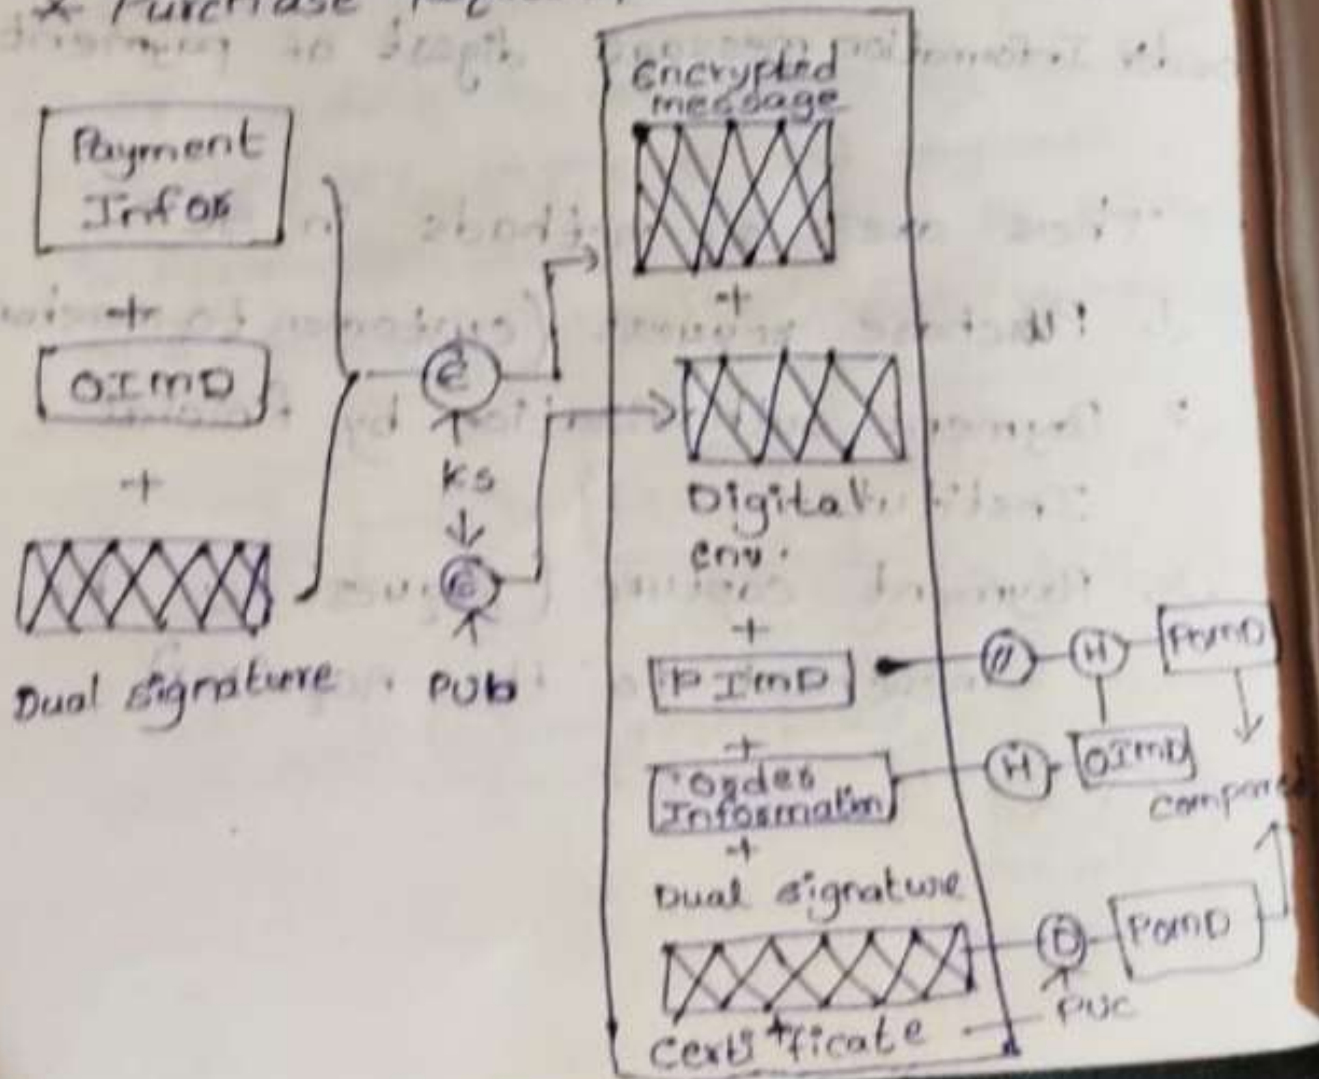 * Purchase
Payment
Infor
+
OIMD
+
Dual signature
E
Ks
E
PUb
Encrypted
message
+
Digital
env.
+
PIMD
+
Order
Information
+
Dual signature
+
Certificate
||
H
POMD
H
OIMD
compare
D
POMD
PUC